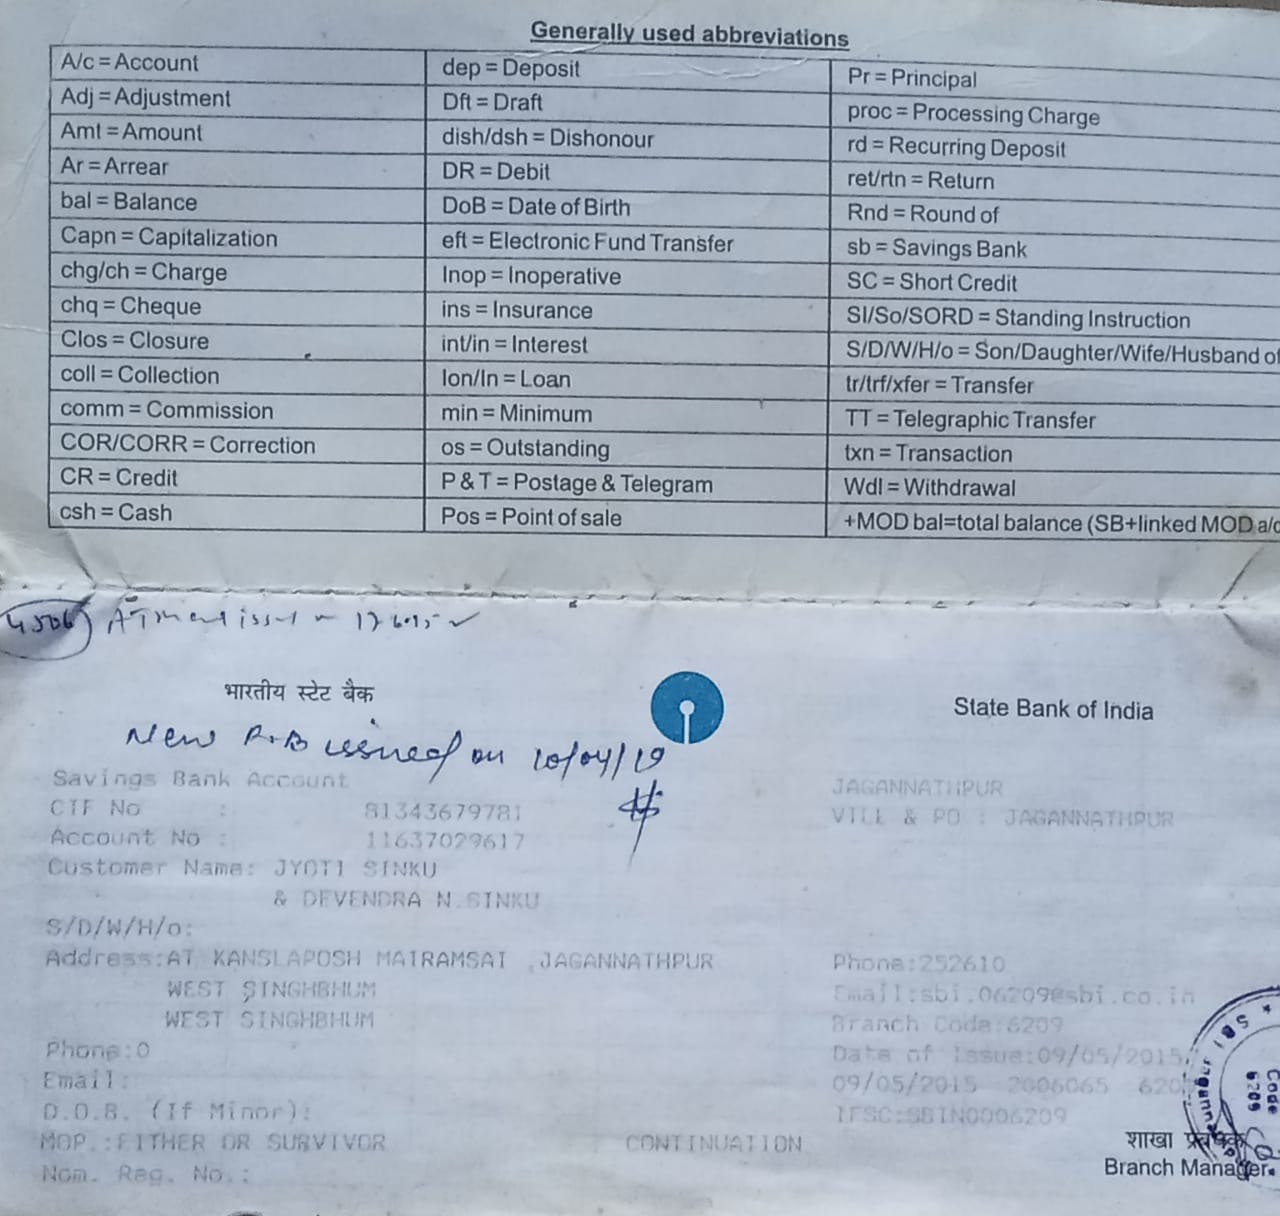 Generally used abbreviations
A/c = Account
Adj = Adjustment
Amt = Amount
Ar = Arrear
bal = Balance
Capn = Capitalization
chg/ch = Charge
chq = Cheque
Clos = Closure
coll = Collection
comm = Commission
COR/CORR = Correction
CR = Credit
csh = Cash
dep = Deposit
Dft = Draft
dish/dsh = Dishonour
DR = Debit
DoB = Date of Birth
eft = Electronic Fund Transfer
Inop = Inoperative
ins = Insurance
int/in = Interest
lon/ln = Loan
min = Minimum
os = Outstanding
P & T = Postage & Telegram
Pos = Point of sale
Pr = Principal
proc = Processing Charge
rd = Recurring Deposit
ret/rtn = Return
Rnd = Round of
sb = Savings Bank
SC = Short Credit
SI/So/SORD = Standing Instruction
S/D/W/H/o = Son/Daughter/Wife/Husband of
tr/trf/xfer = Transfer
TT = Telegraphic Transfer
txn = Transaction
Wdl = Withdrawal
+MOD bal=total balance (SB+linked MOD a/c
भारतीय स्टेट बैंक
State Bank of India
New P.B issued on 10/04/19
Savings Bank Account
CIF No : 81343679781
Account No : 11637029617
Customer Name: JYOTI SINKU
& DEVENDRA N.SINKU
S/D/W/H/o:
Address:AT KANSLAPOSH MATRAMSAI ,JAGANNATHPUR
WEST SINGHBHUM
WEST SINGHBHUM
Phone:0
Email:
D.O.B. (If Minor):
MOP.:EITHER OR SURVIVOR
CONTINUATION
Nom. Reg. No.:
JAGANNATHPUR
VILL & PO : JAGANNATHPUR
Phone:252610
Email:sbi.06209@sbi.co.in
Branch Code:6209
Date of Issue:09/05/2015
09/05/2015 2006065 620
IFSC:SBIN0006209
शाखा प्रबंधक
Branch Manager
SBI
Code
6209